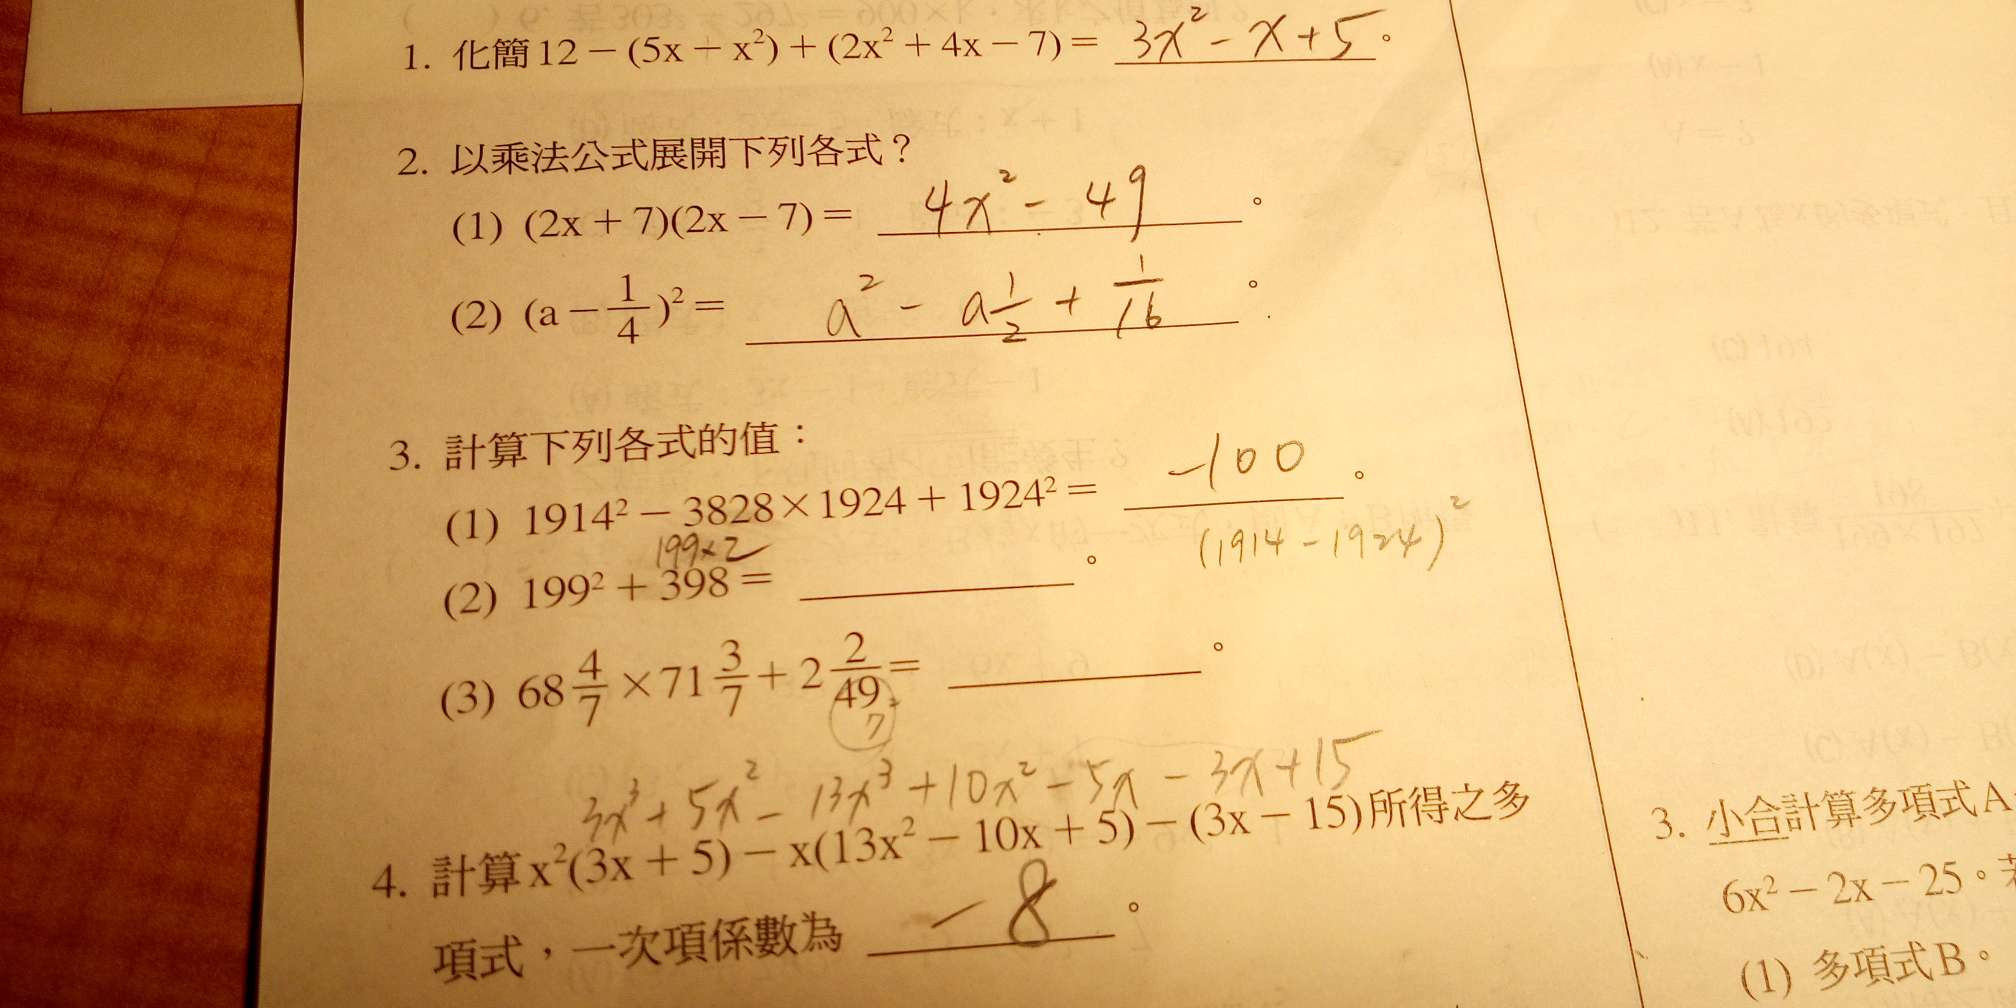 1. 化簡12－(5x－x²)＋(2x²＋4x－7)＝ 3x²－x+5。
2. 以乘法公式展開下列各式？
(1) (2x＋7)(2x－7)＝ 4x²－49。
(2) (a－1/4)²＝ a²－a1/2＋1/16。
3. 計算下列各式的值：
(1) 1914²－3828×1924＋1924²＝ －100。
(1914－1924)²
199×2
(2) 199²＋398＝ 。
(3) 68 4/7×71 3/7＋2 2/49＝ 。
7
3x³+5x²－13x³+10x²－5x－3x+15
4. 計算x²(3x＋5)－x(13x²－10x＋5)－(3x－15)所得之多
項式，一次項係數為 －8。
3. 小合計算多項式A
6x²－2x－25。
(1) 多項式B。